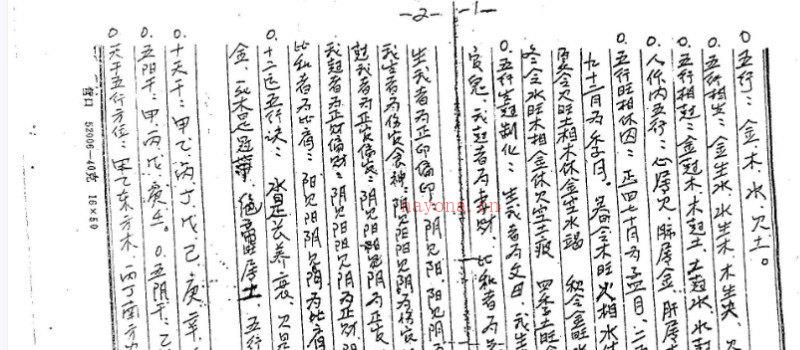 -1-
0.五行：金、木、水、火、土。
0.五行相生：金生水，水生木，木生火，
0.五行相克：金克木，木克土，土克水，水克
0.人体内五行：心属火，肺属金，肝属
0.五行旺相休囚：正四七十月为孟月，二五
九十二月为季月。春令木旺火相水休
夏令火旺土相木休金空水竭 秋令金旺水
冬令水旺木相金休火空土 四季土旺
0.五行生克制化：生我者为父母，我生
官鬼，我克者为妻财，比和者为
-2-
生我者为正印偏印：阴见阳，阳见阴为
我生者为伤官食神：阳见阴阴见阳为伤官
克我者为正官偏官：阴见阳阳见阴为正官
我克者为正财偏财：阴见阳阳见阴为正财，阴
比和者为比肩：阳见阳阴见阴为比肩
0.十二运五行诀：水是长养衰，火是
金，一片木是冠带，绝墓胎属土，五行
0.十天干：甲乙丙丁戊己庚辛
0.五阳干：甲丙戊庚壬。 0.五阴干：乙
0.天干五行方位：甲乙东方木，丙丁南方
窗口 52006-40克 16×50
nayona.cn